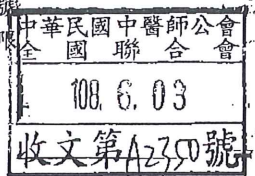 號
中華民國中醫師公會
全國聯合會
108. 6. 03
收文第A2350號